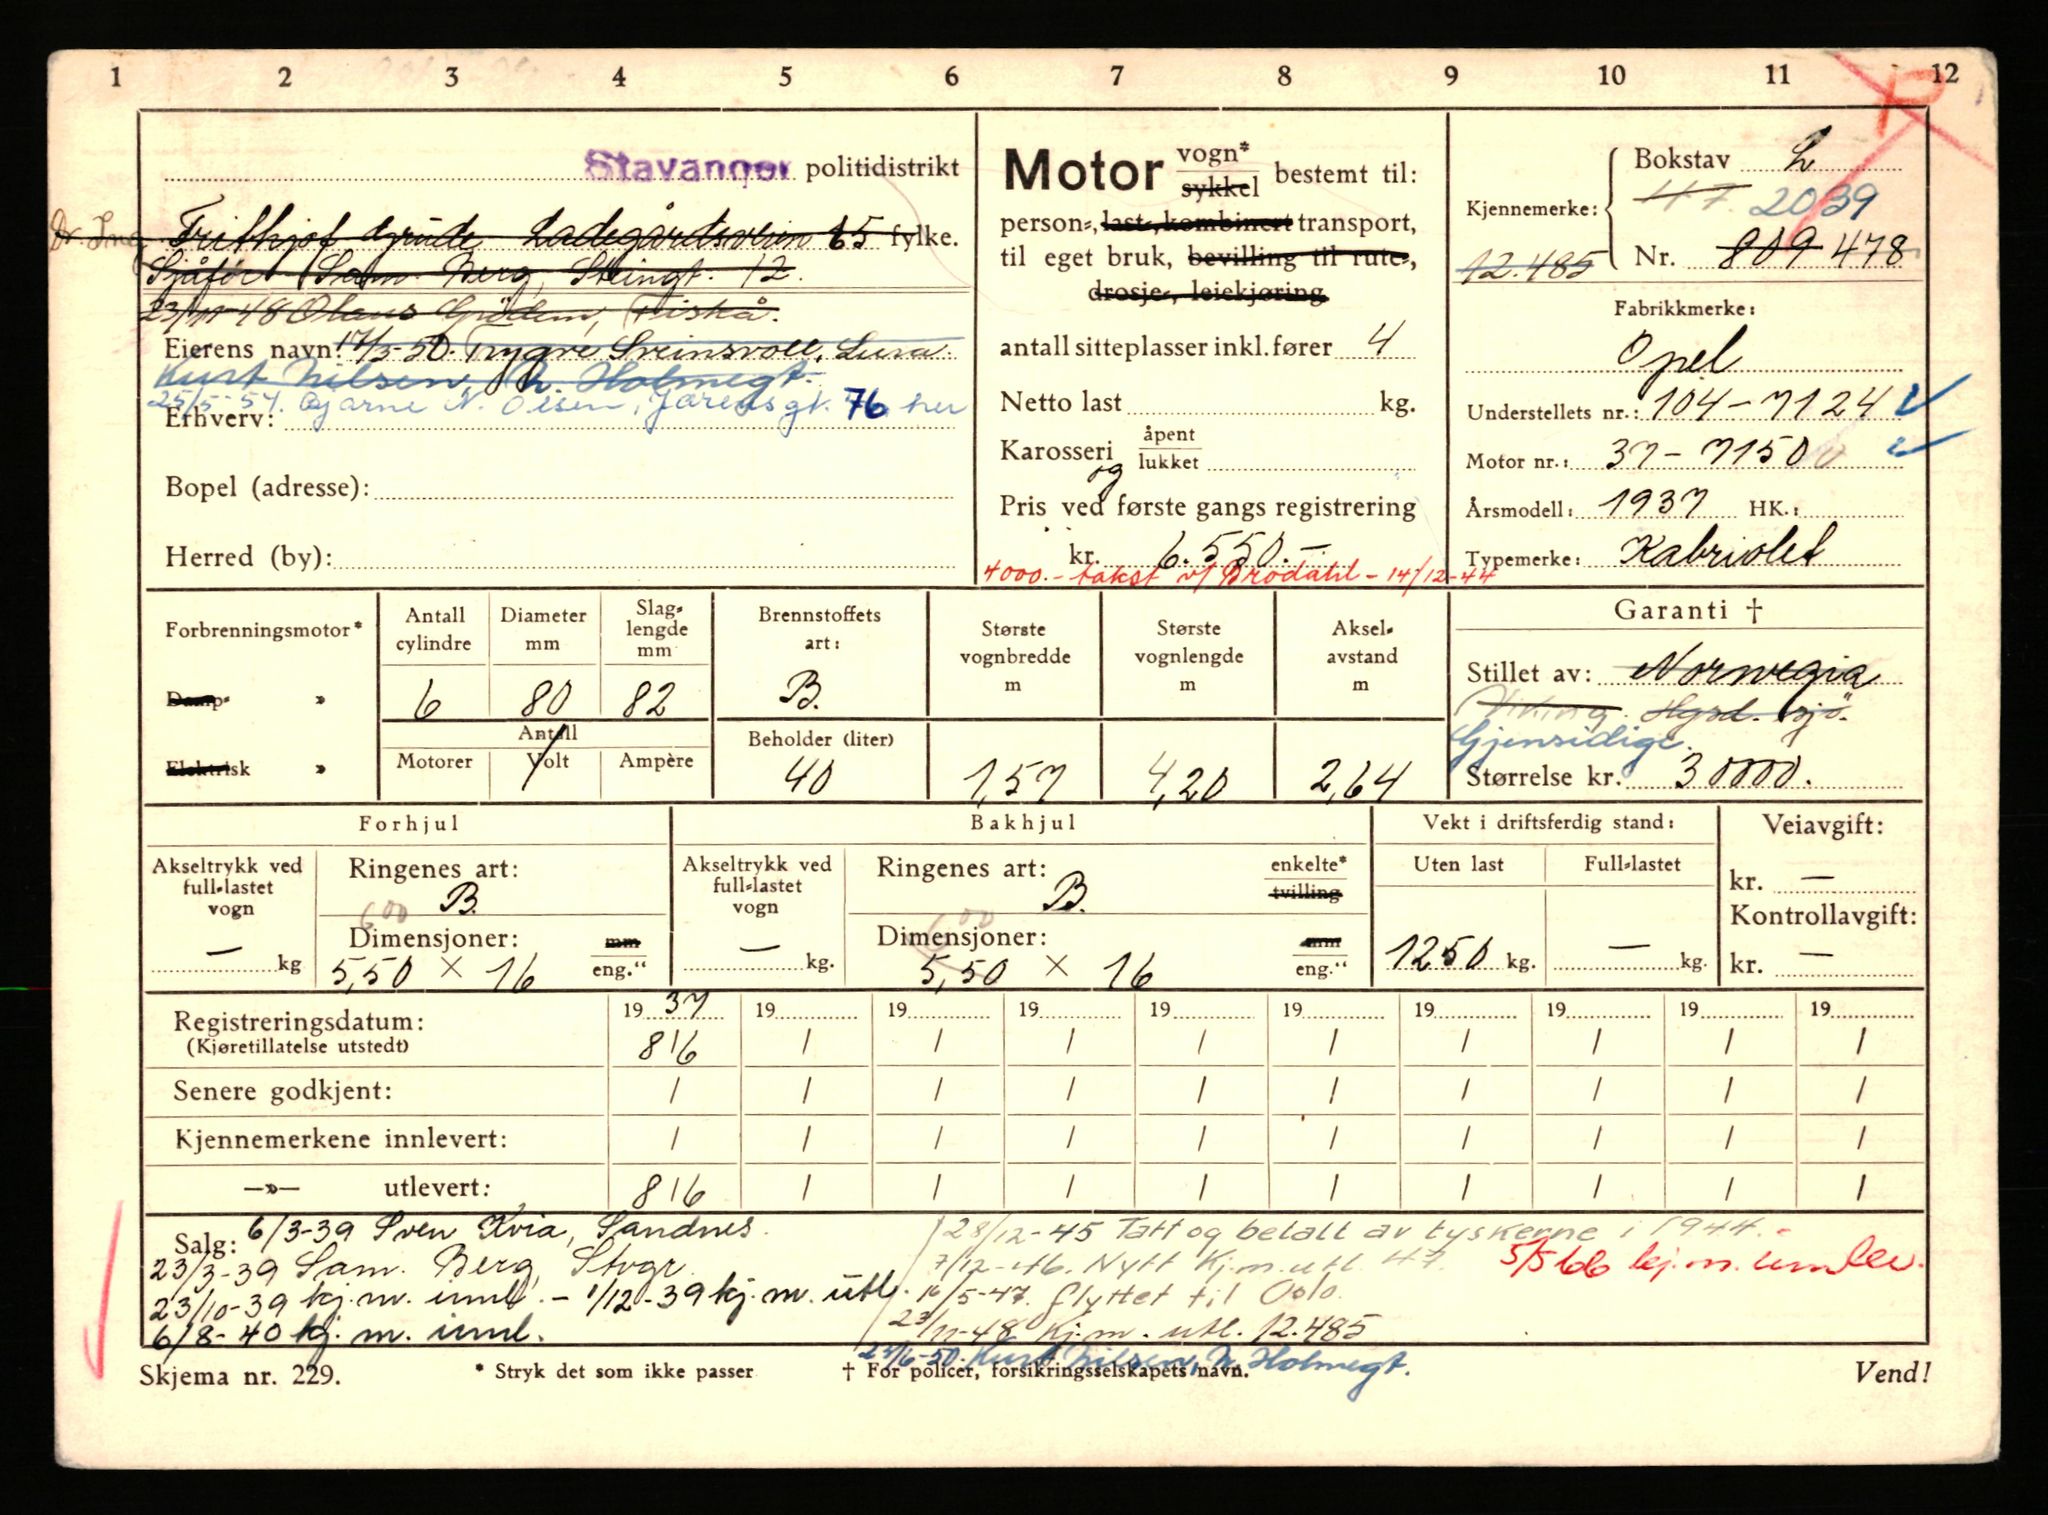 1 2 3 4 5 6 7 8 9 10 11 12
Stavanger politidistrikt
Dr. Ing. Frithjof Grude Ladegårdsveien 65 fylke.
Sjåfør Sam. Berg, Steingt. 12.
23/11-48 Olaus Grødem, Tiskå.
Eierens navn: 17/3-50. Trygve Sveinsvoll, Lura.
Kurt Nilsen, N. Holmegt.
25/5-57. Bjarne N. Olsen, Jærensgt. 76 her
Erhverv:
Bopel (adresse):
Herred (by):
Motor vogn* sykkel bestemt til:
person-, last-, kombinert transport,
til eget bruk, bevilling til rute-,
drosje-, leiekjøring
antall sitteplasser inkl. fører 4
Netto last kg.
Karosseri åpent og lukket
Pris ved første gangs registrering
kr. 6.550.-
4000.- takst v/ Brodahl - 14/12-44
Kjennemerke: Bokstav L
47. 2039
12.485 Nr. 809 478
Fabrikkmerke:
Opel
Understellets nr.: 104-7124
Motor nr.: 37-7150
Årsmodell: 1937 HK.:
Typemerke: Kabriolet
Forbrenningsmotor*
Damp- »
Elektrisk »
Antall cylindre 6
Diameter mm 80
Slag-lengde mm 82
Antall
Motorer Volt Ampère
Brennstoffets art: B.
Beholder (liter) 40
Største vognbredde m 1,57
Største vognlengde m 4,20
Aksel-avstand m 2,64
Garanti †
Stillet av: Norwegia
Viking. Hgsd. Sjø.
Gjensidige.
Størrelse kr. 30000.
Forhjul
Akseltrykk ved full-lastet vogn
— kg
Ringenes art: B.
600
Dimensjoner: mm
5,50 × 16 eng."
Bakhjul
Akseltrykk ved full-lastet vogn
— kg.
Ringenes art: B. enkelte* tvilling
600
Dimensjoner: mm
5,50 × 16 eng."
Vekt i driftsferdig stand:
Uten last Full-lastet
1250 kg. — kg.
Veiavgift:
kr. —
Kontrollavgift:
kr. —
19 37 19 19 19 19 19 19 19 19 19
Registreringsdatum: 8/6 / / / / / / / / /
(Kjøretillatelse utstedt)
Senere godkjent: / / / / / / / / / /
Kjennemerkene innlevert: / / / / / / / / / /
—»— utlevert: 8/6 / / / / / / / / /
Salg: 6/3-39 Sven Kvia, Sandnes.
23/3-39 Sam. Berg, Stvgr.
23/10-39 kj.m. innl. - 1/12-39 kj.m. utl.
6/8-40 kj.m. innl.
28/12-45 Tatt og betalt av tyskerne i 1944.-
7/12-46. Nytt Kj.m. utl. 47.
5/5 66 kj.m. innlev.
16/5-47. flyttet til Oslo.
23/11-48 Kj.m. utl. 12.485
23/6-50. Kurt Nilsen, N. Holmegt.
Skjema nr. 229.
* Stryk det som ikke passer
† For policer, forsikringsselskapets navn.
Vend!